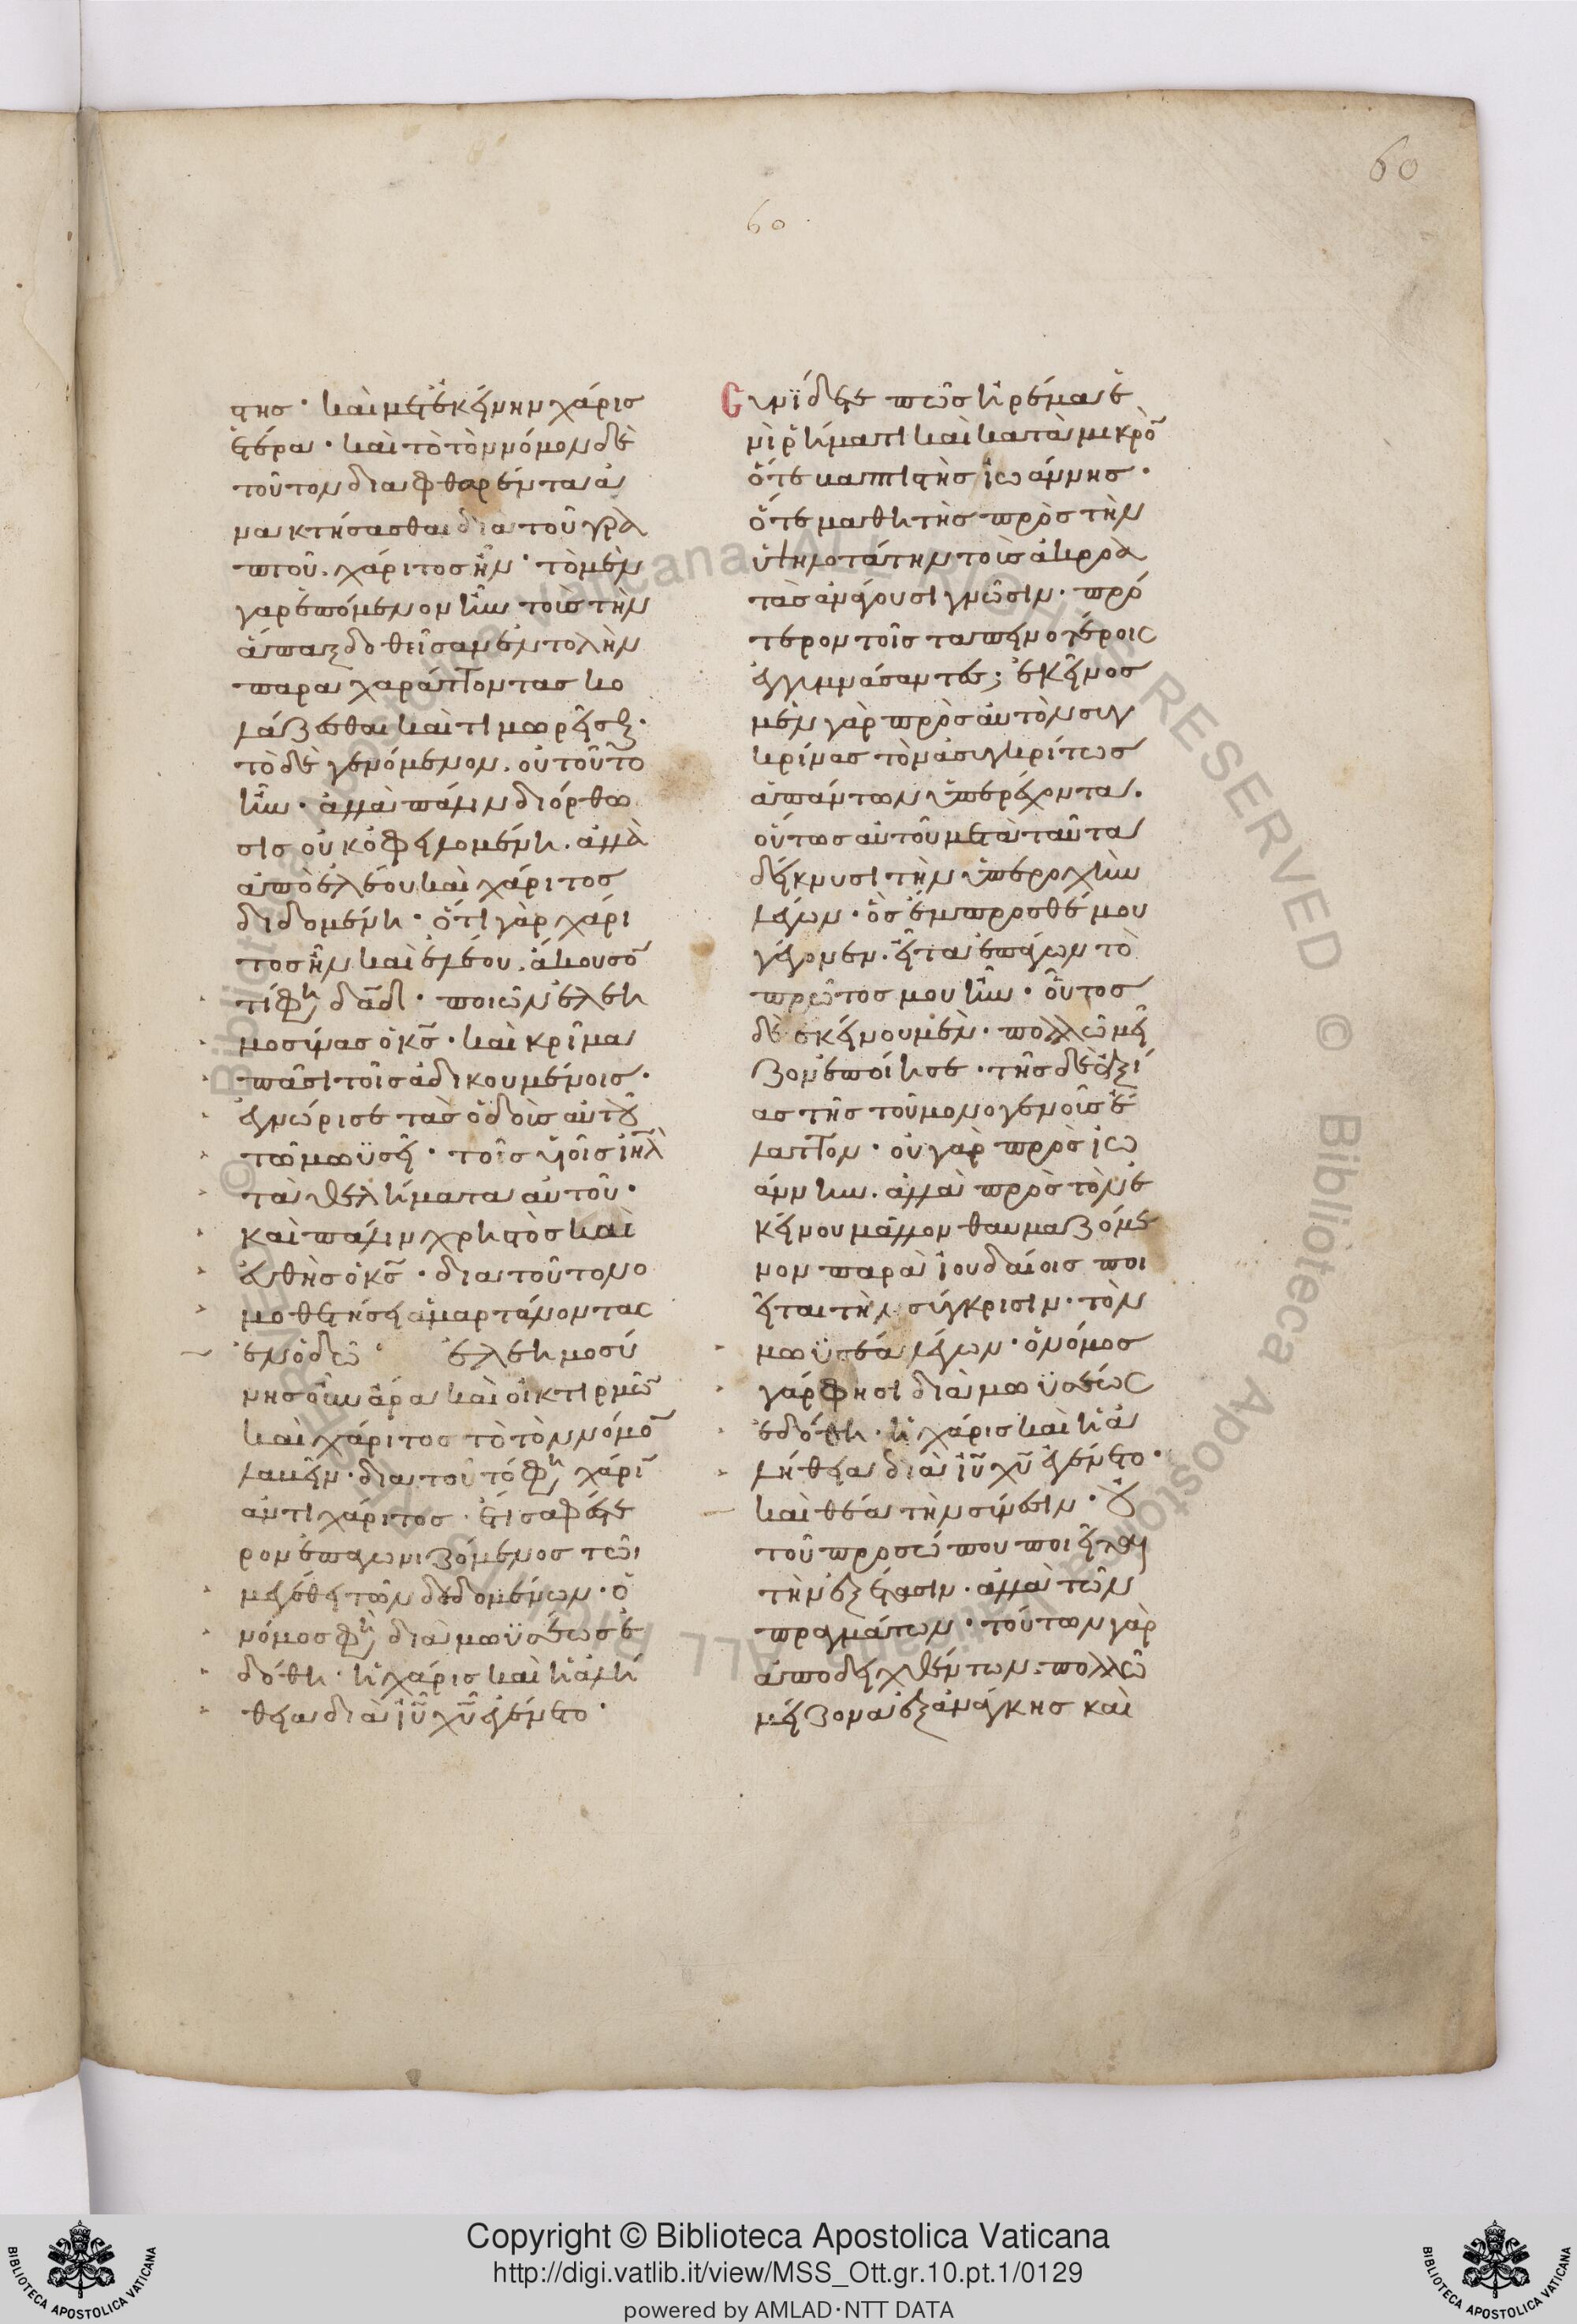 60
60
της· καὶ μετ' ἐκείνην χάρισ
ἑτέρα· καὶ τὸ τὸν νόμον δὲ
τοῦτον διαφθαρέντα ἀ
νακτήσασθαι διὰ τοῦ γρα
πτοῦ. χάριτος ἦν· τὸ μὲν
γὰρ ἑπόμενον ἦν τοὺς τὴν
ἅπαξ δοθεῖσαν ἐντολὴν
παραχαράττοντας κο
λάζεσθαι καὶ τιμωρεῖσθ·
τὸ δὲ γενόμενον. οὐ τοῦτο
ἦν· ἀλλὰ πάλιν διόρθω
σις οὐκ ὀφειλομένη. ἀλλὰ
ἀπὸ ἐλέου καὶ χάριτος
διδομένη· ὅτι γὰρ χάρι
τος ἦν καὶ ἐλέου. ἄκουσο̄
τί φη δᾱδ· ποιῶν ἐλεη
μοσύνας ὁ κ̄ς· καὶ κρῖμα
πᾶσι τοῖς ἀδικουμένοις·
ἐγνώρισε τὰς ὁδοὺς αὐτοῦ
τῷ μωϋσεῖ· τοῖς υἱοῖς ῑηλ
τὰ θελήματα αὐτοῦ·
καὶ πάλιν χρηστὸς καὶ
εὐθὴς ὁ κ̄ς· διὰ τοῦτο νο
μοθετήσει ἁμαρτάνοντας
ἐν ὁδῷ· ἐλεημοσύ
νης οὖν ἄρα καὶ οἰκτιρμῶ̄
καὶ χάριτος τὸ τὸν νόμο̄
λαβεῖν· διὰ τοῦτό φη χάρῑ
ἀντὶ χάριτος· ἔτι σαφέστε
ρον ἐπαγωνιζόμενος τῶι
μεγέθει τῶν δεδομένων· ὁ
νόμος φη διὰ μωϋσέως ἐ
δόθη· ἡ χάρις καὶ ἡ ἀλή
θεια διὰ ῑῡ χ̄ῡ ἐγένετο·
Συνίδετε πῶς ἠρέμα ἑ
νὶ ῥήματι καὶ κατὰ μικρὸ̄
ὅτε βαπτιστὴς ἰωάννης·
ὅτε μαθητὴς πρὸς τὴν
ὑψηλοτάτην τοὺς ἀκροα
τὰς ἀνάγουσι γνῶσιν. πρό
τερον τοῖς ταπεινοτέροις
ἐγγυμνάσαντες; ἐκεῖνος
μὲν γὰρ πρὸς αὐτὸν συγ
κρίνας τὸν ἀσυγκρίτως
ἁπάντων ὑπερέχοντα.
οὕτως αὐτοῦ μετὰ ταῦτα
δείκνυσι τὴν ὑπεροχὴν
λέγων· ὃς ἔμπροσθέ μου
γέγονεν. εἶτα ἐπάγων τὸ
πρῶτος μου ἦν· οὗτος
δὲ ἐκείνου μὲν. πολλῶ μεῖ
ζον ἐποίησε. τῆς δὲ ἀξί
ας τῆς τοῦ μονογενοῦς ἔ
λαττον· οὐ γὰρ πρὸς ἰω
άννην. ἀλλὰ πρὸς τὸν ἐ
κείνου μᾶλλον θαυμαζόμε
νον παρὰ ἰουδαίοις ποι
εῖται τὴν σύγκρισιν· τὸν
μωϋσέα λέγων· ὁ νόμος
γάρ φησι διὰ μωϋσέως
ἐδόθη· ἡ χάρις καὶ ἡ ἀ
λήθεια διὰ ῑῡ χ̄ῡ ἐγένετο·
καὶ θέα τὴν σύνεσιν· οὐ
τοῦ προσώπου ποιεῖται
τὴν ἐξέτασιν. ἀλλὰ τῶν
πραγμάτων· τούτων γὰρ
ἀποδειχθέντων. πολλῶ
μείζονα ἐξ ἀνάγκης καὶ
© Biblioteca Apostolica Vaticana ALL RIGHTS RESERVED © Biblioteca Apostolica Vaticana ALL RIGHTS RESERVED
Copyright © Biblioteca Apostolica Vaticana
http://digi.vatlib.it/view/MSS_Ott.gr.10.pt.1/0129
powered by AMLAD·NTT DATA
BIBLIOTECA APOSTOLICA VATICANA
BIBLIOTECA APOSTOLICA VATICANA